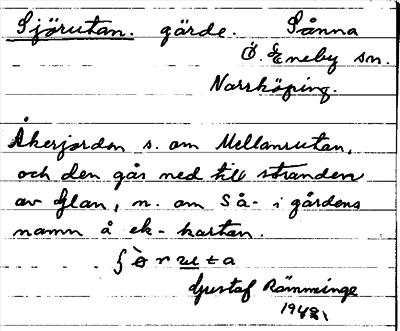 Sjörutan. gärde. Sånna
Ö. Eneby sn.
Norrköping.
Åkerjorden s. om Mellanrutan,
och den går ned till stranden
av Glan, n. om Så- i gårdens
namn å ek-kartan.
Gustaf Rämminge
1948.